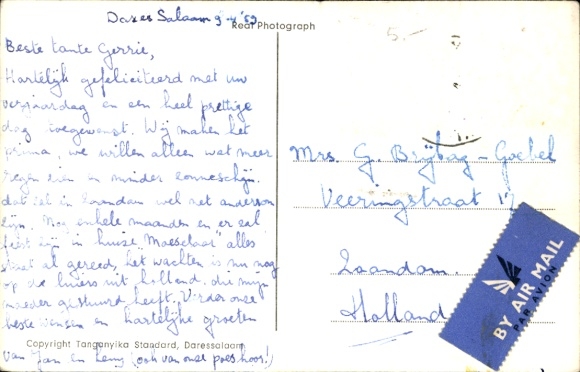 Dares Salaam 9-4'59
Real Photograph
5.-
Beste tante Gerrie,
Hartelijk gefeliciteerd met uw
verjaardag en een heel prettige
dag toegewenst. Wij maken het
prima, we willen alleen wat meer
regen zien en minder zonneschijn.
dat zal in Zaandam wel net andersom
zijn. Nog enkele maanden en er zal
feest zijn in huize "Maeselaar" alles
staat al gereed, het wachten is nu nog
op de luiers uit holland. die mijn
moeder gestuurd heeft. Verder onze
beste wensen en hartelijke groeten
van Jan en Leny (ook van onze poes hoor!)
Copyright Tanganyika Standard, Daressalaam
Mrs. G. Brijbag - Goebel
Veeringstraat 17
Zaandam.
Holland
BY AIR MAIL
PAR AVION